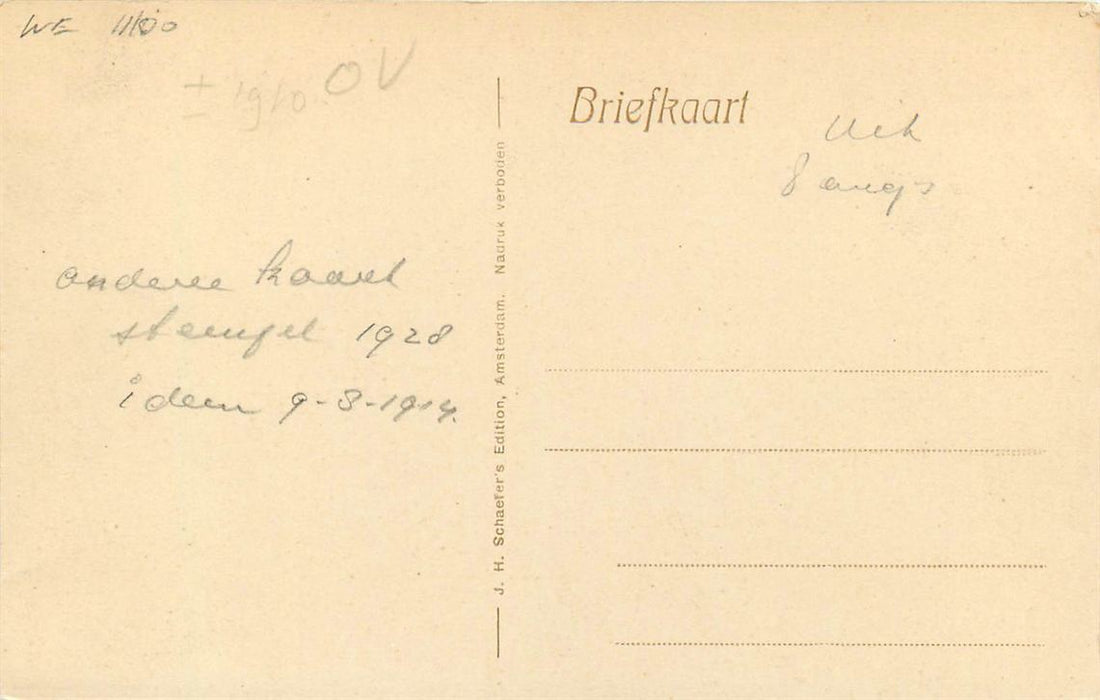 WE 11/00
± 1910 OV
andere kaart
stempel 1928
idem 9-8-1914.
J. H. Schaefer's Edition, Amsterdam. Nadruk verboden
Briefkaart